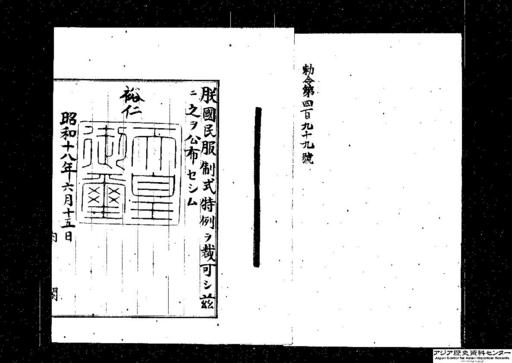 勅令第四百九十九號
朕國民服制式特例ヲ裁可シ茲
ニ之ヲ公布セシム
裕仁
天皇御璽
昭和十八年六月十五日
内閣
アジア歴史資料センター
Japan Center for Asian Historical Records